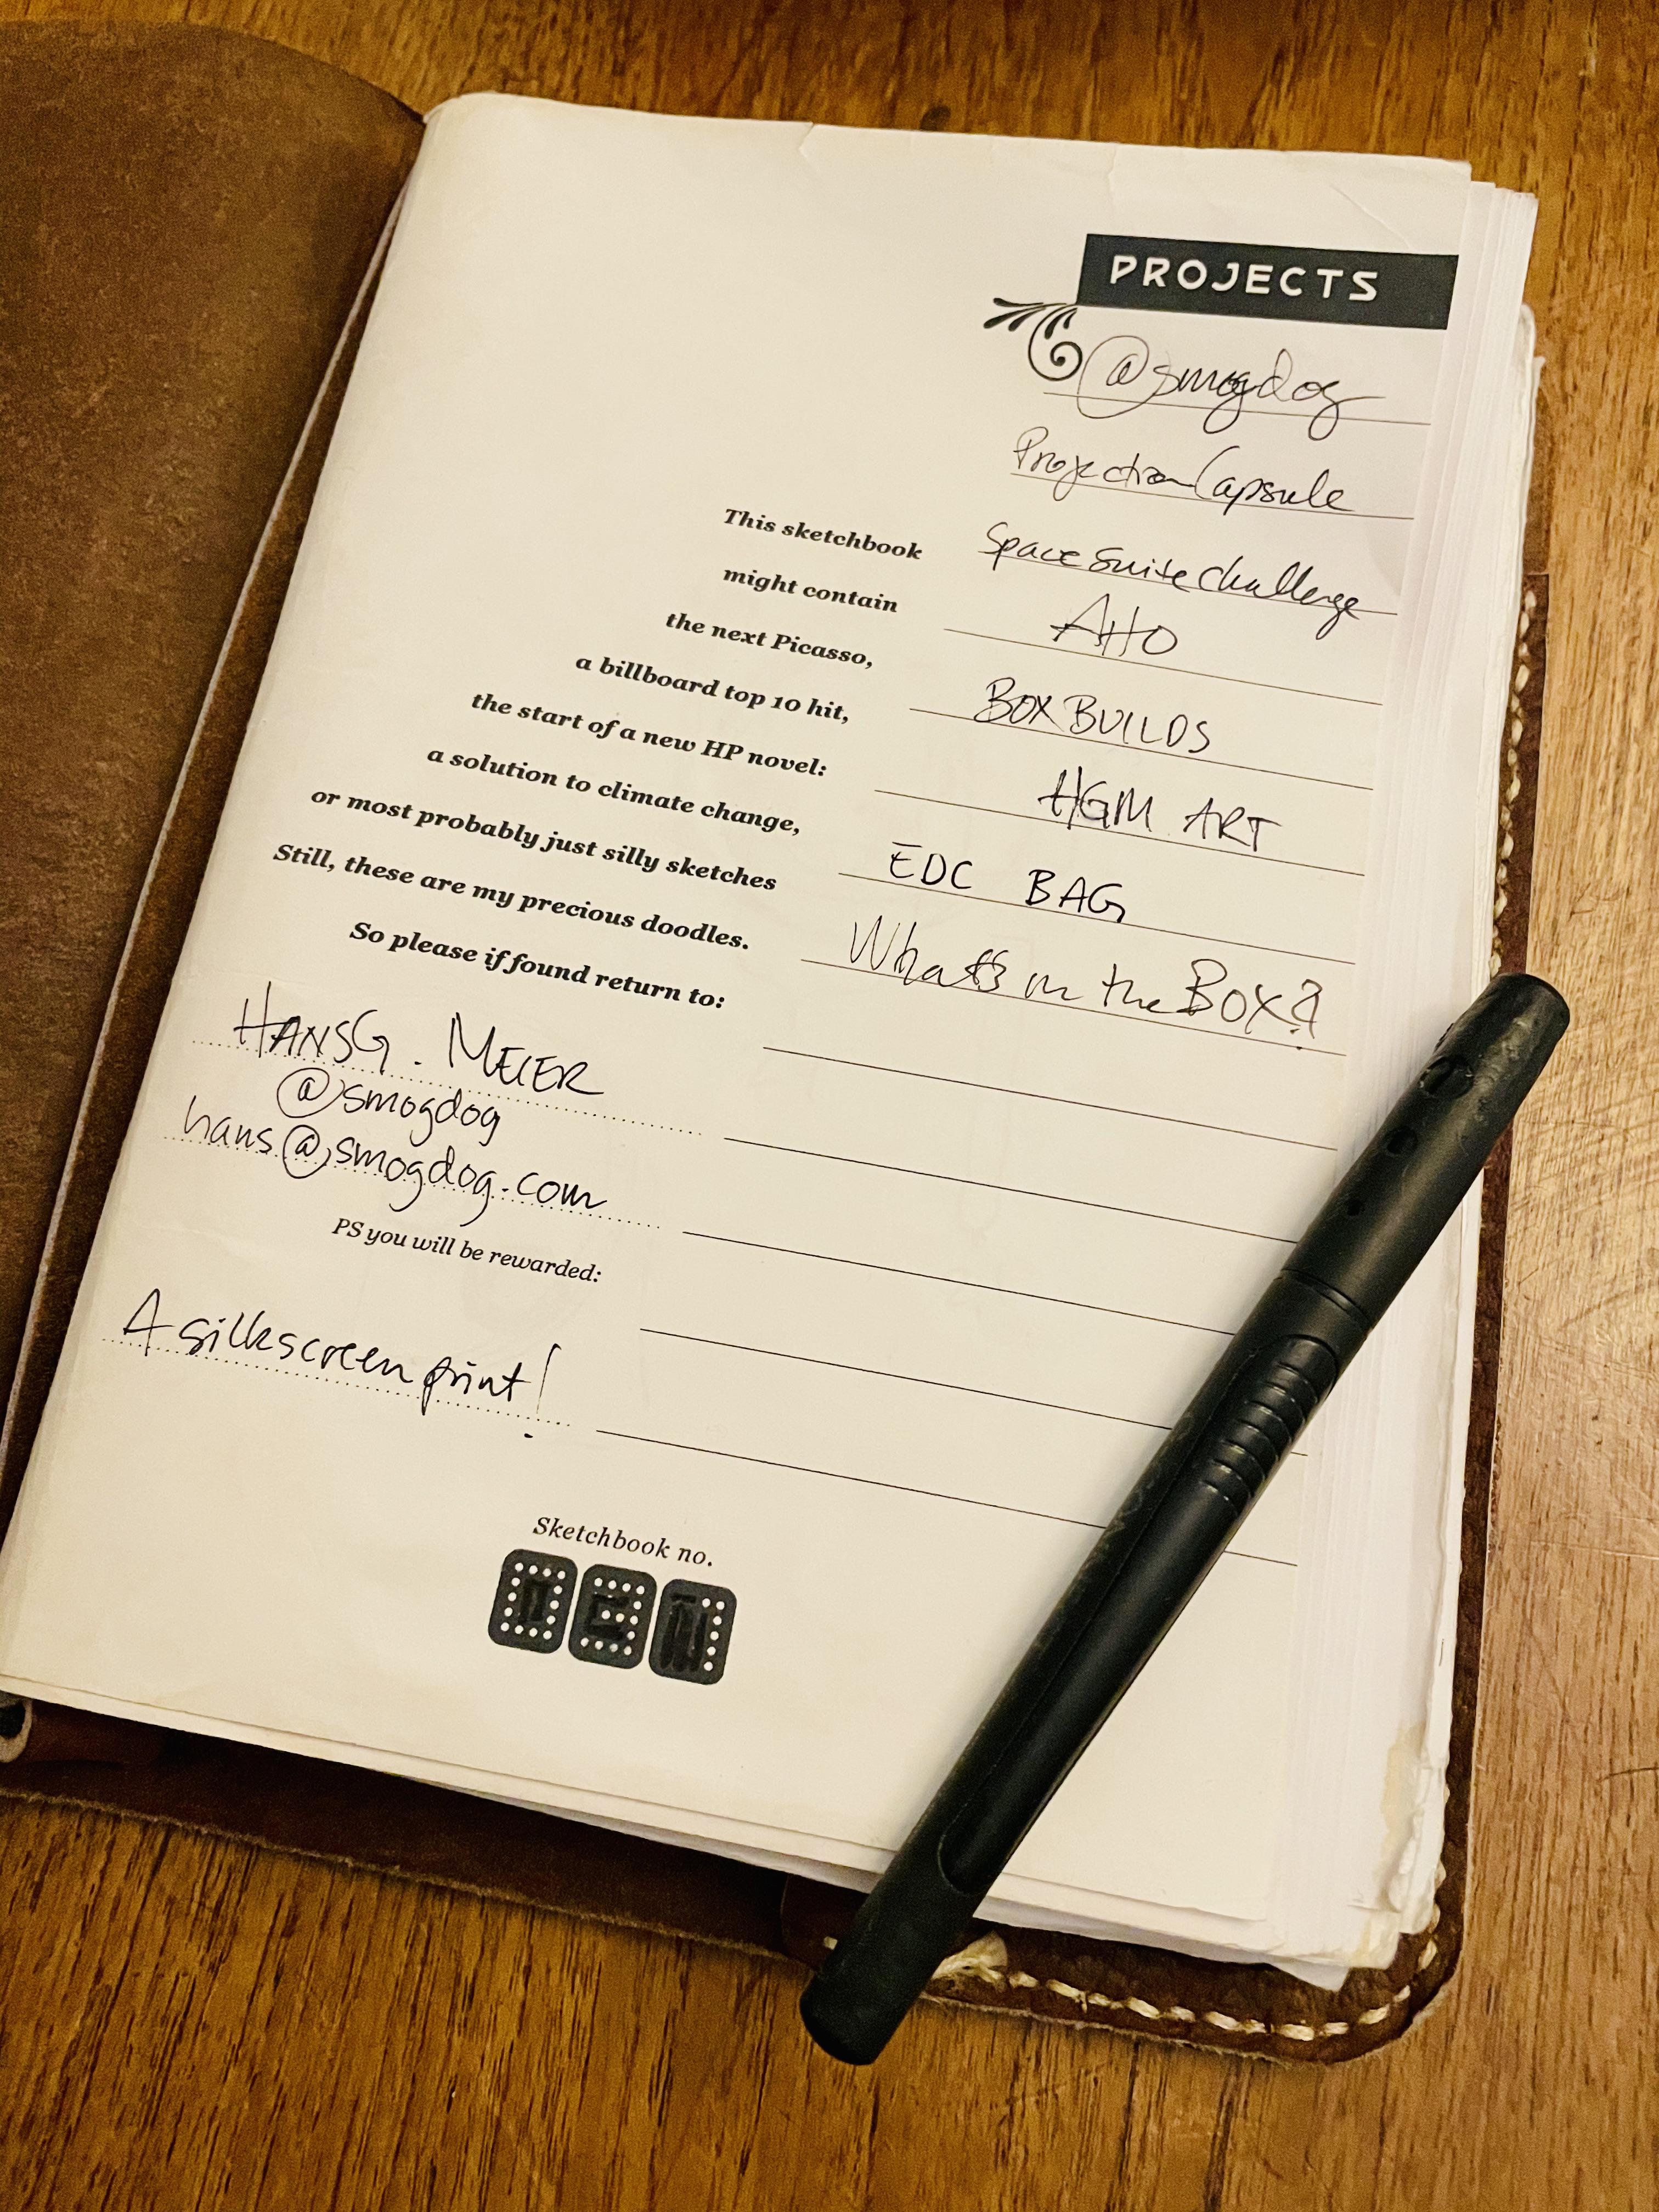 PROJECTS
@smogdog
Projection Capsule
Space Suite Challenge
AHO
BOX BUILDS
HGM ART
EDC BAG
What's in the BOX?
This sketchbook
might contain
the next Picasso,
a billboard top 10 hit,
the start of a new HP novel:
a solution to climate change,
or most probably just silly sketches
Still, these are my precious doodles.
So please if found return to:
HANS G. MEIER
@smogdog
hans@smogdog.com
PS you will be rewarded:
A silkscreen print!
Sketchbook no.